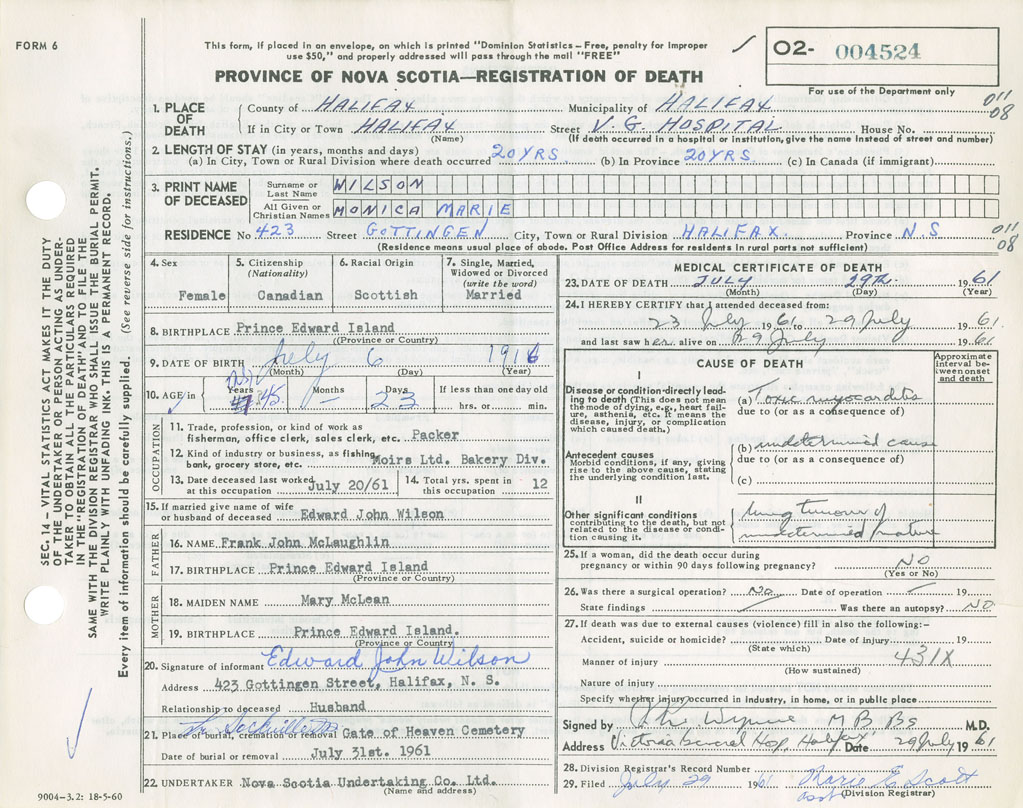 FORM 6
This form, if placed in an envelope, on which is printed "Dominion Statistics – Free, penalty for improper
use $50," and properly addressed will pass through the mail "FREE"
O2- 004524
For use of the Department only
PROVINCE OF NOVA SCOTIA—REGISTRATION OF DEATH
1. PLACE OF DEATH
County of HALIFAX Municipality of HALIFAX 011 08
If in City or Town HALIFAX Street V. G. HOSPITAL House No.
(Name) (If death occurred in a hospital or institution, give the name instead of street and number)
2. LENGTH OF STAY (in years, months and days)
(a) In City, Town or Rural Division where death occurred 20 YRS (b) In Province 20 YRS (c) In Canada (if immigrant)
3. PRINT NAME OF DECEASED
Surname or Last Name WILSON
All Given or Christian Names MONICA MARIE
RESIDENCE No 423 Street GOTTINGEN City, Town or Rural Division HALIFAX Province N.S 011 08
(Residence means usual place of abode. Post Office Address for residents in rural parts not sufficient)
4. Sex Female
5. Citizenship (Nationality) Canadian
6. Racial Origin Scottish
7. Single, Married, Widowed or Divorced (write the word) Married
8. BIRTHPLACE Prince Edward Island
(Province or Country)
9. DATE OF BIRTH July 6 1916
(Month) (Day) (Year)
10. AGE/in Years 45 Months – Days 23 If less than one day old
hrs. or min.
OCCUPATION
11. Trade, profession, or kind of work as
fisherman, office clerk, sales clerk, etc. Packer
12. Kind of industry or business, as fishing,
bank, grocery store, etc. Moirs Ltd. Bakery Div.
13. Date deceased last worked
at this occupation July 20/61
14. Total yrs. spent in
this occupation 12
15. If married give name of wife
or husband of deceased Edward John Wilson
FATHER
16. NAME Frank John McLaughlin
17. BIRTHPLACE Prince Edward Island
(Province or Country)
MOTHER
18. MAIDEN NAME Mary McLean
19. BIRTHPLACE Prince Edward Island.
(Province or Country)
20. Signature of informant Edward John Wilson
Address 423 Gottingen Street, Halifax, N. S.
Relationship to deceased Husband
21. Place of burial, cremation or removal Gate of Heaven Cemetery
Date of burial or removal July 31st. 1961
22. UNDERTAKER Nova Scotia Undertaking Co. Ltd.
(Name and address)
MEDICAL CERTIFICATE OF DEATH
23. DATE OF DEATH JULY 29TH. 1961
(Month) (Day) (Year)
24. I HEREBY CERTIFY that I attended deceased from:
23 July 1961 to 29 July 1961
and last saw her alive on 29 July 1961
CAUSE OF DEATH
Approximate interval between onset and death
I
Disease or condition directly leading
to death (This does not mean
the mode of dying, e.g., heart failure,
asthenia, etc. It means the
disease, injury, or complication
which caused death.)
(a) Toxic myocarditis
due to (or as a consequence of)
Antecedent causes
Morbid conditions, if any, giving
rise to the above cause, stating
the underlying condition last.
(b) undetermined cause
due to (or as a consequence of)
(c)
II
Other significant conditions
contributing to the death, but not
related to the disease or condition
causing it.
lung tumour of
undetermined nature
25. If a woman, did the death occur during
pregnancy or within 90 days following pregnancy? NO
(Yes or No)
26. Was there a surgical operation? No Date of operation – 19
State findings Was there an autopsy? NO
27. If death was due to external causes (violence) fill in also the following:-
Accident, suicide or homicide? Date of injury 19
(State which) 431X
Manner of injury
(How sustained)
Nature of injury
Specify whether injury occurred in industry, in home, or in public place
Signed by M B BS M.D.
Address Victoria General Hosp, Halifax Date 29 July 1961
28. Division Registrar's Record Number
29. Filed July 29 1961 Marie E Scott
asst (Division Registrar)
SEC. 14 – VITAL STATISTICS ACT MAKES IT THE DUTY
OF THE UNDERTAKER OR PERSON ACTING AS UNDERTAKER
TO OBTAIN ALL THE PARTICULARS REQUIRED
IN THE "REGISTRATION OF DEATH" AND TO FILE THE
SAME WITH THE DIVISION REGISTRAR WHO SHALL ISSUE THE BURIAL PERMIT.
WRITE PLAINLY WITH UNFADING INK. THIS IS A PERMANENT RECORD.
Every item of information should be carefully supplied. (See reverse side for instructions.)
9004–3.2: 18-5-60